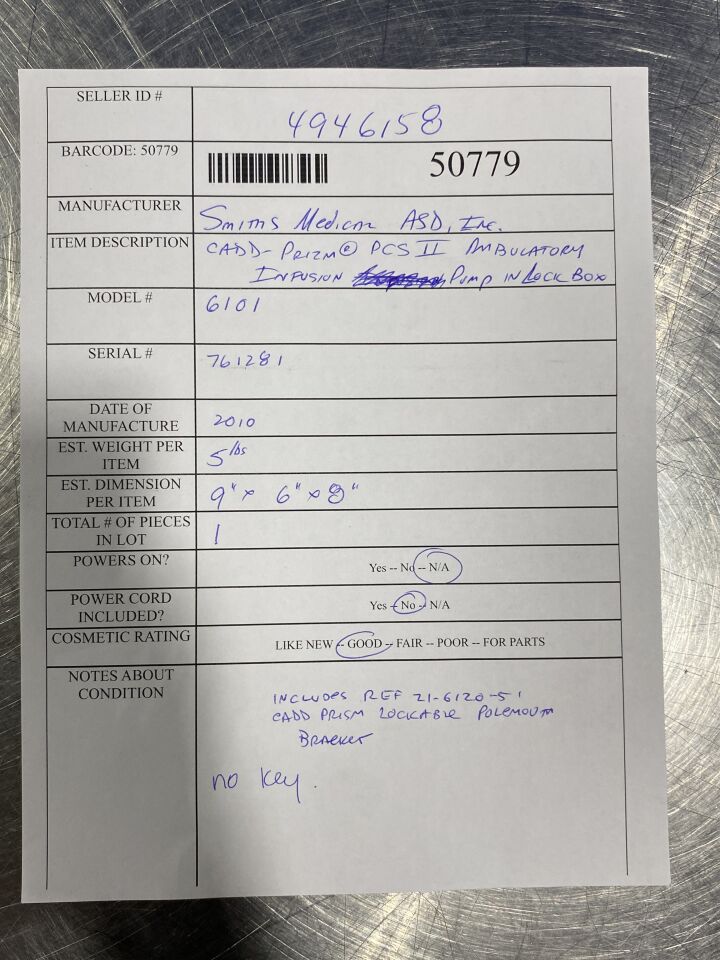 SELLER ID #
4946158
BARCODE: 50779
50779
MANUFACTURER
Smiths Medical ASD, Inc.
ITEM DESCRIPTION
CADD-PRIZM® PCS II AMBULATORY
INFUSION PUMP IN LOCK BOX
MODEL #
6101
SERIAL #
761281
DATE OF
MANUFACTURE
2010
EST. WEIGHT PER
ITEM
5 lbs
EST. DIMENSION
PER ITEM
9" x 6" x 8"
TOTAL # OF PIECES
IN LOT
1
POWERS ON?
Yes -- No -- N/A
POWER CORD
INCLUDED?
Yes -- No -- N/A
COSMETIC RATING
LIKE NEW -- GOOD -- FAIR -- POOR -- FOR PARTS
NOTES ABOUT
CONDITION
INCLUDES REF 21-6120-51
CADD PRISM LOCKABLE POLEMOUTN
BRACKET
no key.